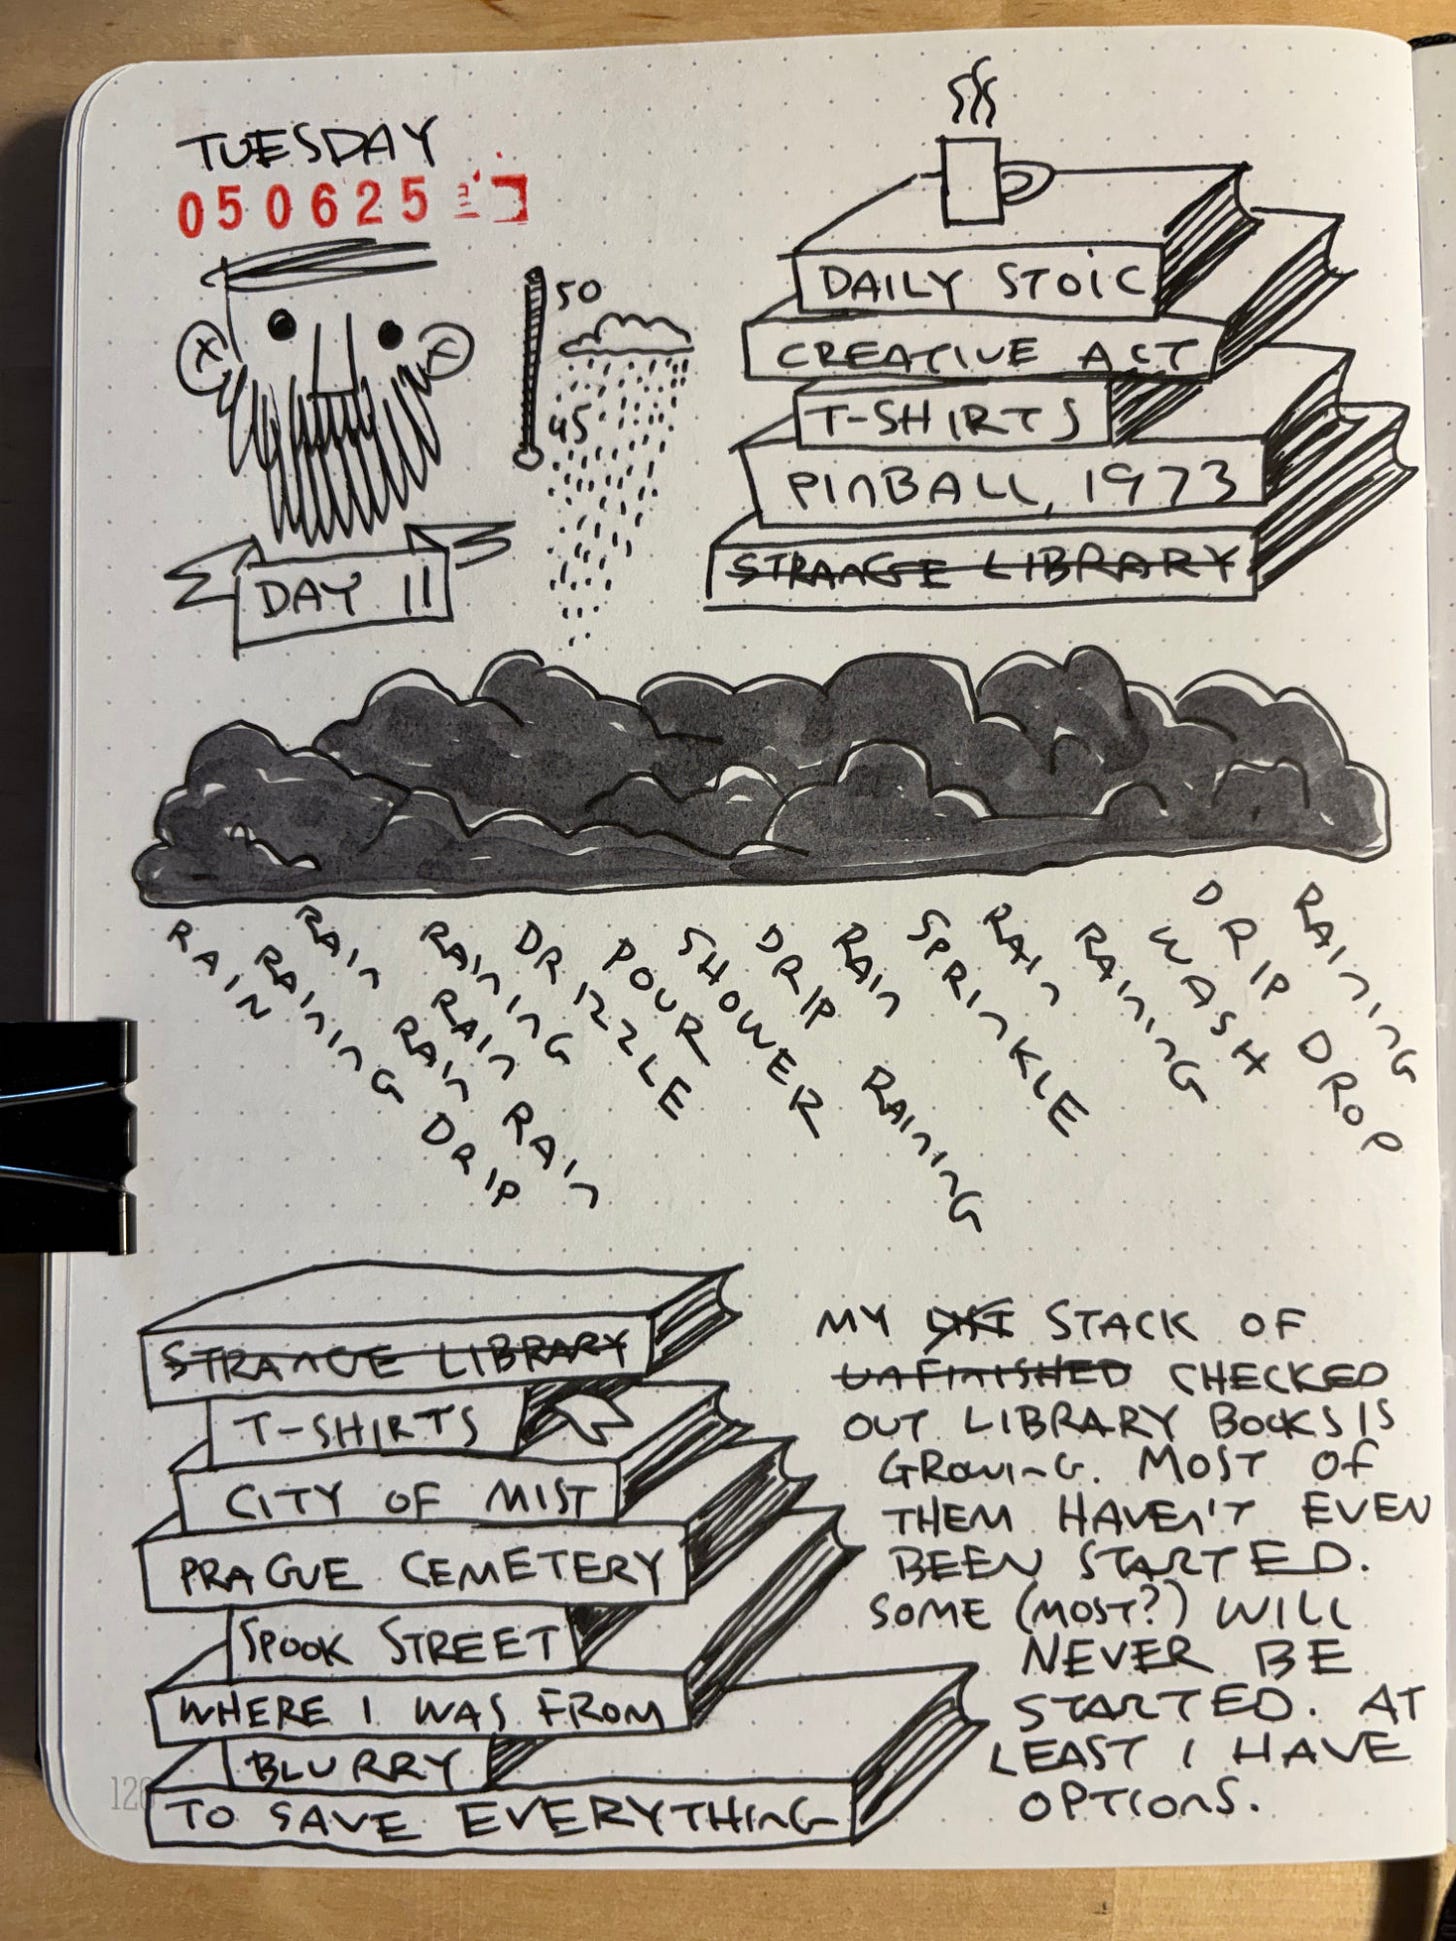 TUESDAY
050625
50
45
DAY 11
DAILY STOIC
CREATIVE ACT
T-SHIRTS
PINBALL, 1973
STRANGE LIBRARY
RAIN
RAINING DRIP
RAIN RAIN RAIN
RAIN
RAINING
DRIZZLE
POUR
SHOWER
DRIP RAINING
RAIN
SPRINKLE
RAIN
RAINING
WASH
DRIP DROP
RAINING
STRANGE LIBRARY
T-SHIRTS
CITY OF MIST
PRAGUE CEMETERY
SPOOK STREET
WHERE I WAS FROM
BLURRY
TO SAVE EVERYTHING
MY LIST STACK OF
UNFINISHED CHECKED
OUT LIBRARY BOOKS IS
GROWING. MOST OF
THEM HAVEN'T EVEN
BEEN STARTED.
SOME (MOST?) WILL
NEVER BE
STARTED. AT
LEAST I HAVE
OPTIONS.